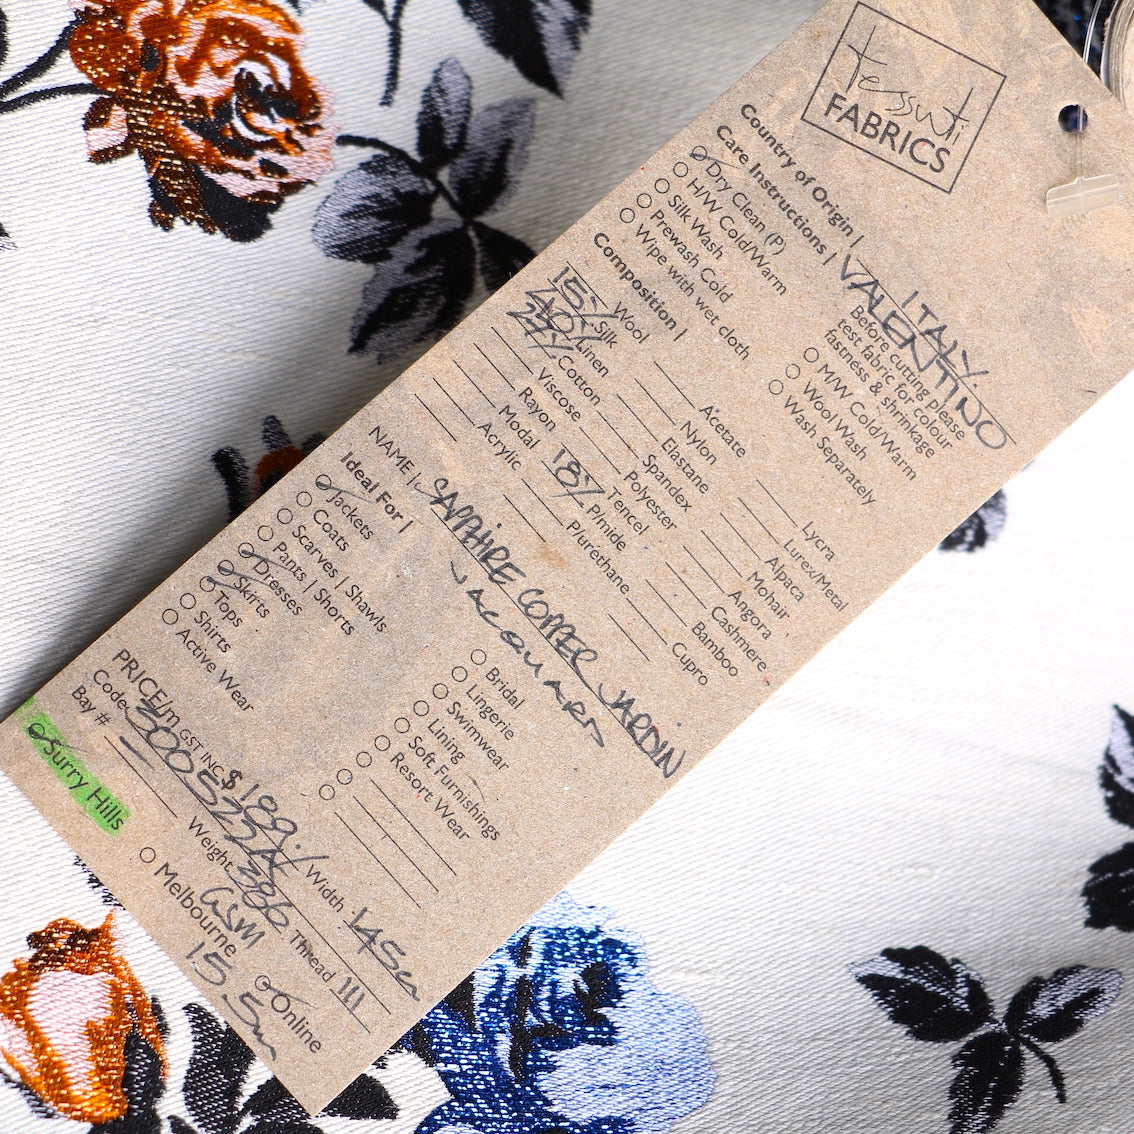 tessuti
FABRICS
Country of Origin | ITALY.
Care Instructions | VALENTINO
Dry Clean (P)
H/W Cold/Warm
Silk Wash
Prewash Cold
Wipe with wet cloth
Before cutting please
test fabric for colour
fastness & shrinkage
M/W Cold/Warm
Wool Wash
Wash Separately
Composition |
15% Wool
40% Silk
Linen
27% Cotton
Viscose
Rayon
Modal
Acrylic
Acetate
Nylon
Elastane
Spandex
Polyester
Tencel
18% P/mide
P/urethane
Lycra
Lurex/Metal
Alpaca
Mohair
Angora
Cashmere
Bamboo
Cupro
NAME | SAPPHIRE COPPER JARDIN
JACQUARD
Ideal For |
Jackets
Coats
Scarves | Shawls
Pants | Shorts
Dresses
Skirts
Tops
Shirts
Active Wear
Bridal
Lingerie
Swimwear
Lining
Soft Furnishings
Resort Wear
PRICE/m GST INC. $189./ Width 145cm
Code Weight 386 Thread 111
GSM
Bay #
Surry Hills
Melbourne
Online
15.5m